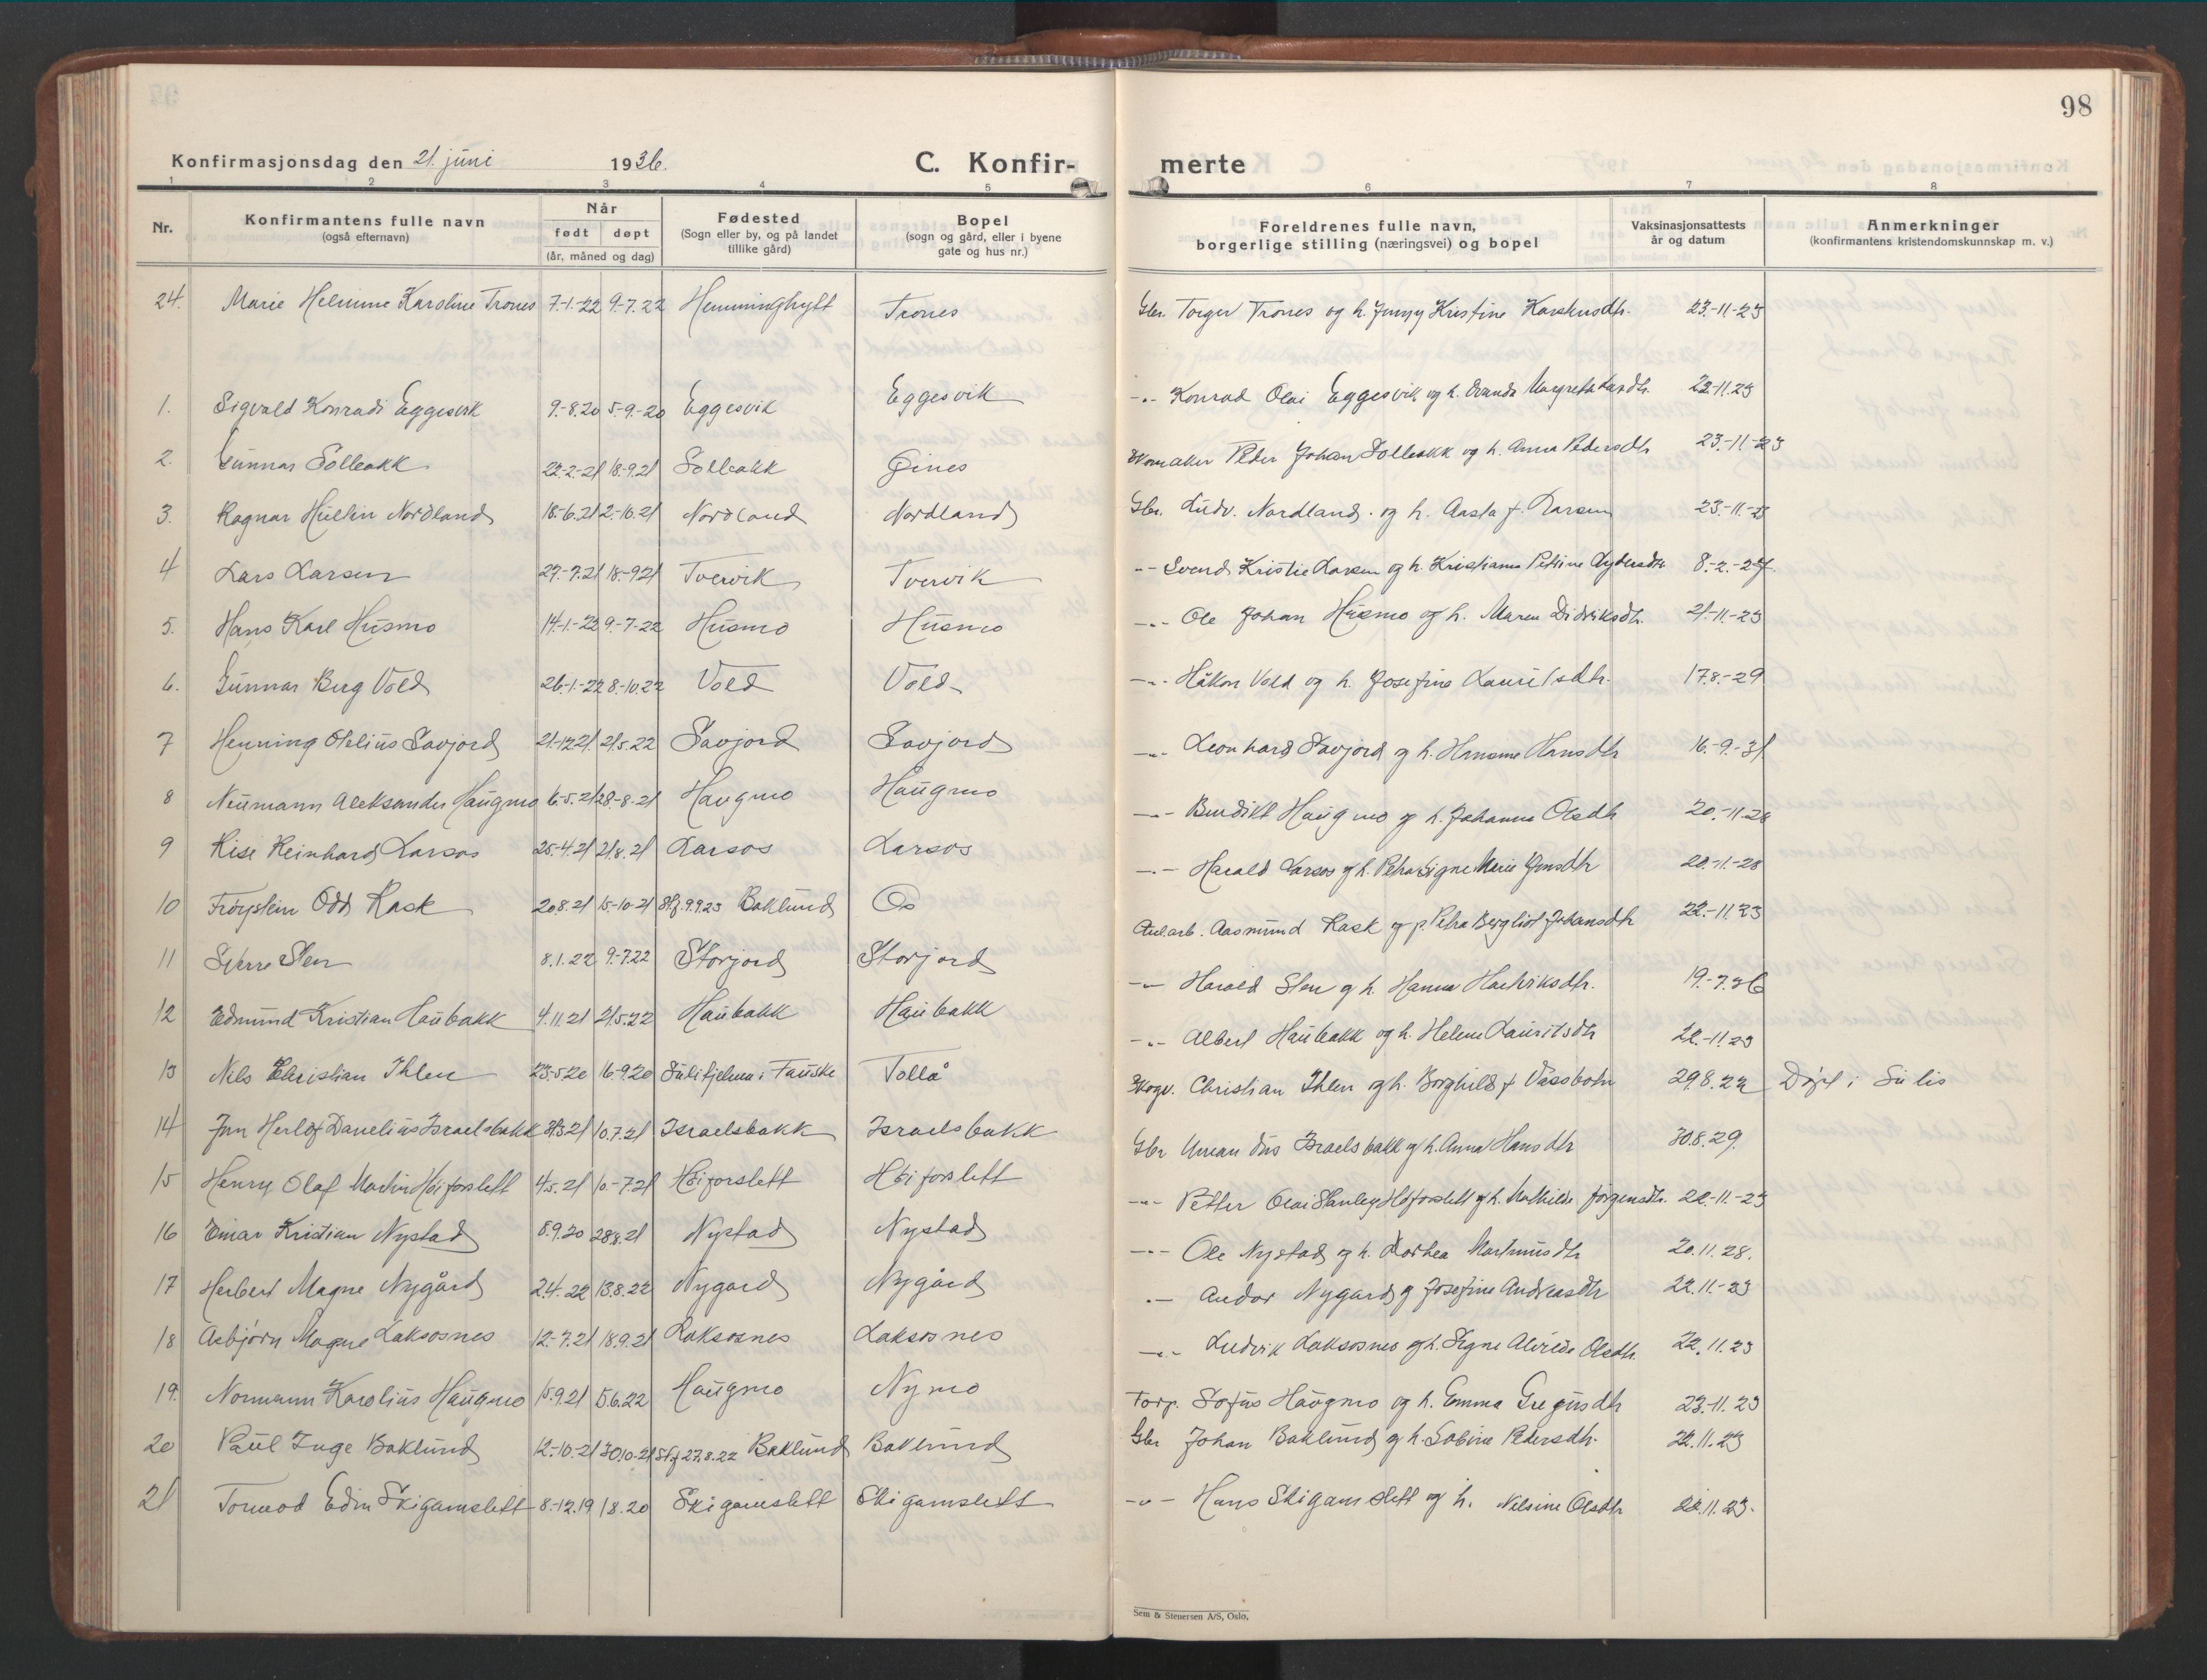 98
Konfirmasjonsdag den 21. juni 1936. C. Konfirmerte
1 2 3 4 5 6 7 8
Nr. Konfirmantens fulle navn (også efternavn) Når født døpt (år, måned og dag) Fødested (Sogn eller by, og på landet tillike gård) Bopel (sogn og gård, eller i byene gate og hus nr.) Foreldrenes fulle navn, borgerlige stilling (næringsvei) og bopel Vaksinasjonsattests år og datum Anmerkninger (konfirmantens kristendomskunnskap m. v.)
24. Marie Helmine Karoline Trones 7-1-22 9-7.22 Hemminghytt Trones Gbr. Torger Trones og h. Jenny Kristine 23.-11-23
1. Sigvald Konradi Eggesvik 9-8.20 5-9.-20 Eggesvik Eggesvik -"- Konrad Olai Eggesvik og h. Margrethe 22.11.23
2. Gunnar Solbakk 22-2-21 18-9.21 Solbakk Gines Peder Johan Solbakk og h. Anna Pedersdtr 23.-11-23
3. Ragnar Nordland 18-6.21 2.-10.21 Nordland Nordland Gbr. Ludv. Nordland og h. Aasta f. Larsen 23.-11-23
4 Lars Larsen 27.-7.21 18.-9.21 Tvervik Tvervik -"- Svend Kristie Larsen og h. Kristiane Petrine 8.-2.-27
5. Hans Karl Husmo 14.-1.-22 9.-7.22 Husmo Husmo -"- Ole Johan Husmo og h. Maren Didriksdtr. 21-11-23
6. Gunnar Berg Vold 26-1.-22 8.-10.22 Vold Vold -"- Håkon Vold og h. Josefine Lauritsdtr. 17.8.-29
7 Henning Otelius Savjord 21.-12.21 21.5.22 Savjord Savjord -"- Leonhard Savjord og h. Hansine Hansdtr 16.-9.-31
8 Neumann Aleksander Haugmo 6.-5.21 28.-8.21 Haugmo Haugmo -"- Benedikt Haugmo og h. Johanna Olsdtr 20.-11.28
9 Reinhard Larsos 25.4.21 21.8.21 Larsos Larsos -"- Harald Larsos og h. Petra Signe Marie Jensdtr 20.-11.-28
10 Frøystein Odd Rask 20.8.21 15.-10-21 Stf. 9.9.23 Baklund Os Aasmund Rask og p. Petra Bergliot Johansdtr 22.-11.23
11 Sverre Sten 8.1.22 9.-7.22 Storjord Storjord -"- Harald Sten og h. Hanna 19.-7.36
12 Edmund Kristian Haubakk 4.11.21 21.5.22 Haubakk Haubakk -"- Albert Haubakk og h. Helene Lauritsdtr 22.-11.23
13 Nils Christian Ihlen 23.-5.20 16.-9.20 Sulitjelma i Fauske Tollå Skogv. Christian Ihlen og h. Borghild f Vassbotn 29.8.22 Døpt i Sulis
14 Jon Herlof Danelius Israelsbakk 31.3.21 10.7.21 Israelsbakk Israelsbakk Gbr Israelsbakk og h. Anna Hansdtr 30.8.29.
15 Henry Olaf Martin Høiforslett 4.5.21 10.-7.21 Høiforslett Høiforslett -"- Petter Olai Stanley Høiforslett og h. Mathilde Jørgensdtr. 22.-11.-23
16 Einar Kristian Nystad 8.9.20 28.8.21 Nystad Nystad -"- Ole Nystad og h. Dorthea Martinusdtr 20.11.28.
17 Herbert Magne Nygård 24.4.22 13.8.22 Nygard Nygård -"- Andor Nygard og Josefine Andreasdtr 22.11.-23
18 Asbjørn Magne Laksosnes 12.-7.21 18.9.21 Laksosnes Laksosnes -"- Ludvik Laksosnes og h. Signe Olsdtr. 22.11.23
19. Normann Karolius Haugmo 15.9.21 5.6.22 Haugmo Nymo Torp. Sofus Haugmo og h. Emma Gregusdtr 23.-11.23
20 Paul Inge Baklund 12.-10.-21 30.10.21 Stf 27.8.22 Baklund Baklund Gbr Johan Baklund og h. Sabine Pedersdtr. 22.11.23
21 Tormod Edin Skigamslett 8.-12.19 1.8.20 Skigamslett Skigamslett -"- Hans Skigamslett og h. Nilsine Olsdtr 22.11.23.
Sem & Stenersen A/S, Oslo.